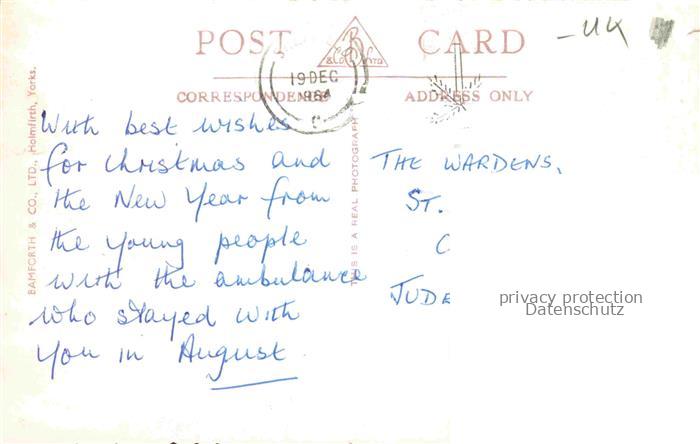 - UK
POST CARD
B & Co Ltd
19 DEC
1964
CORRESPONDENCE
ADDRESS ONLY
BAMFORTH & CO., LTD., Holmfirth, Yorks.
THIS IS A REAL PHOTOGRAPH
With best wishes
for Christmas and
the New Year from
the young people
with the ambulance
who stayed with
you in August
THE WARDENS,
ST.
C
JUDE
privacy protection
Datenschutz